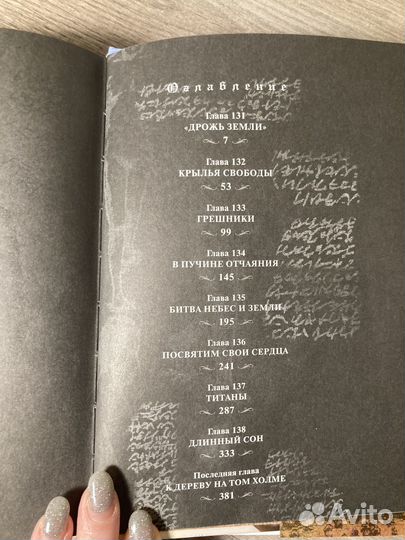 Оглавление
Глава 131
«ДРОЖЬ ЗЕМЛИ»
7
Глава 132
КРЫЛЬЯ СВОБОДЫ
53
Глава 133
ГРЕШНИКИ
99
Глава 134
В ПУЧИНЕ ОТЧАЯНИЯ
145
Глава 135
БИТВА НЕБЕС И ЗЕМЛИ
195
Глава 136
ПОСВЯТИМ СВОИ СЕРДЦА
241
Глава 137
ТИТАНЫ
287
Глава 138
ДЛИННЫЙ СОН
333
Последняя глава
К ДЕРЕВУ НА ТОМ ХОЛМЕ
381
Avito